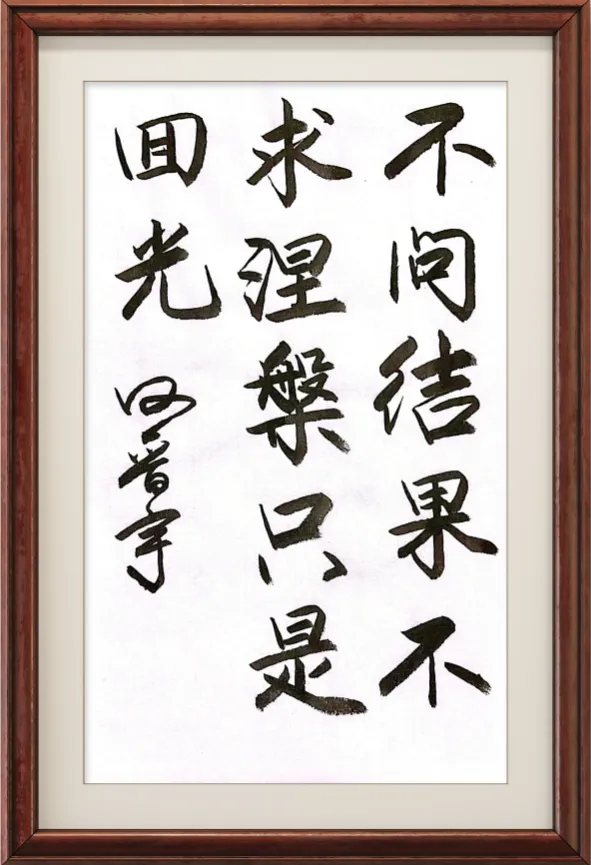 不问结果不
求涅槃只是
回光